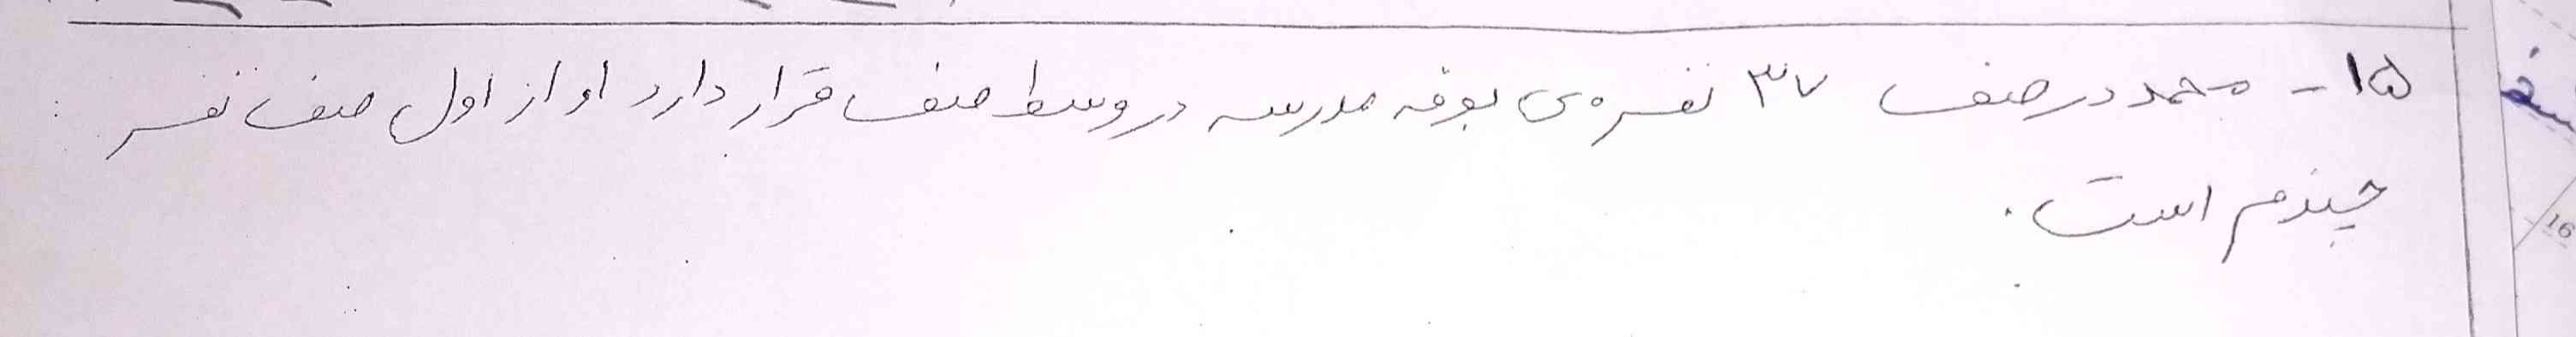 ۱۵ - محمد در صف ۳۷ نفره ی بوفه مدرسه در وسط صف قرار دارد او از اول صف نفر
چندم است.